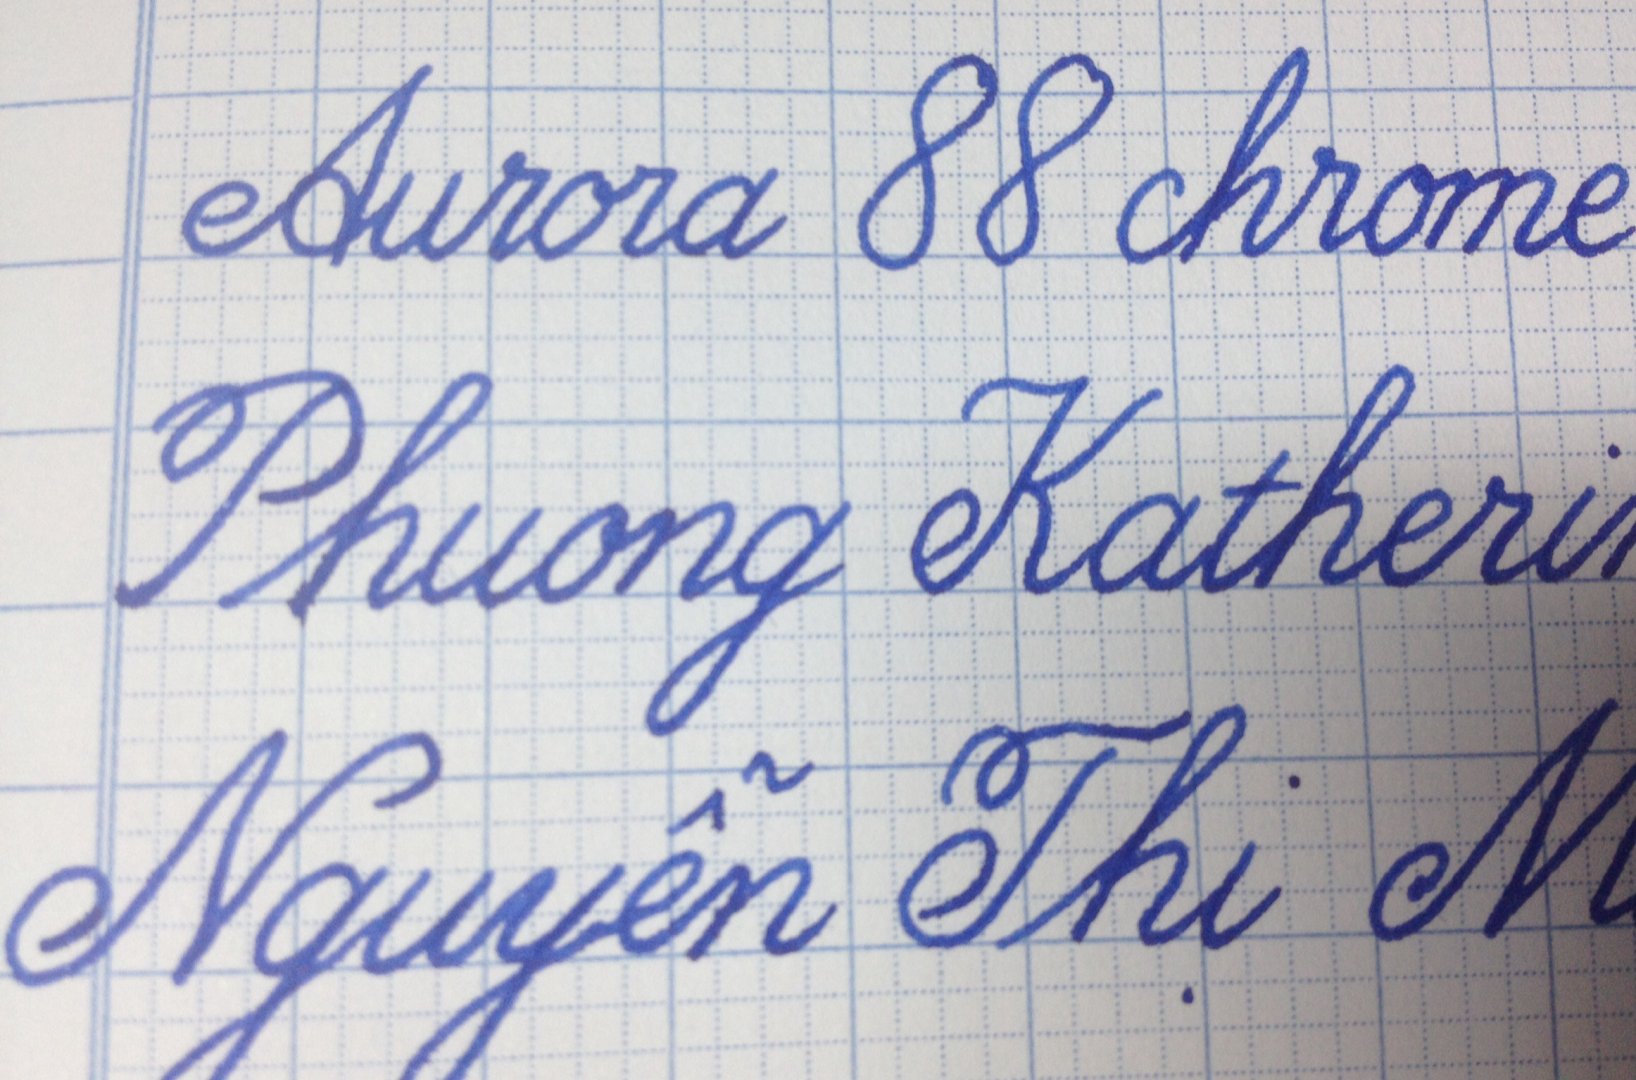 Aurora 88 chrome
Phuong Katherin
Nguyễn Thị M